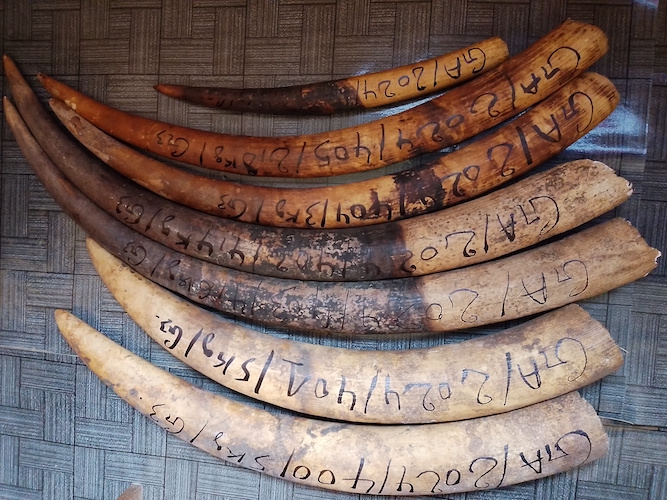 GA/2024/
GA/2024/405/2,8kg/G3
GA/202 /404/3kg/G3
GA/202 /402/4,4kg/G3
GA/202
GA/2024/401/5kg/G3
GA/2024/400/5kg/G3